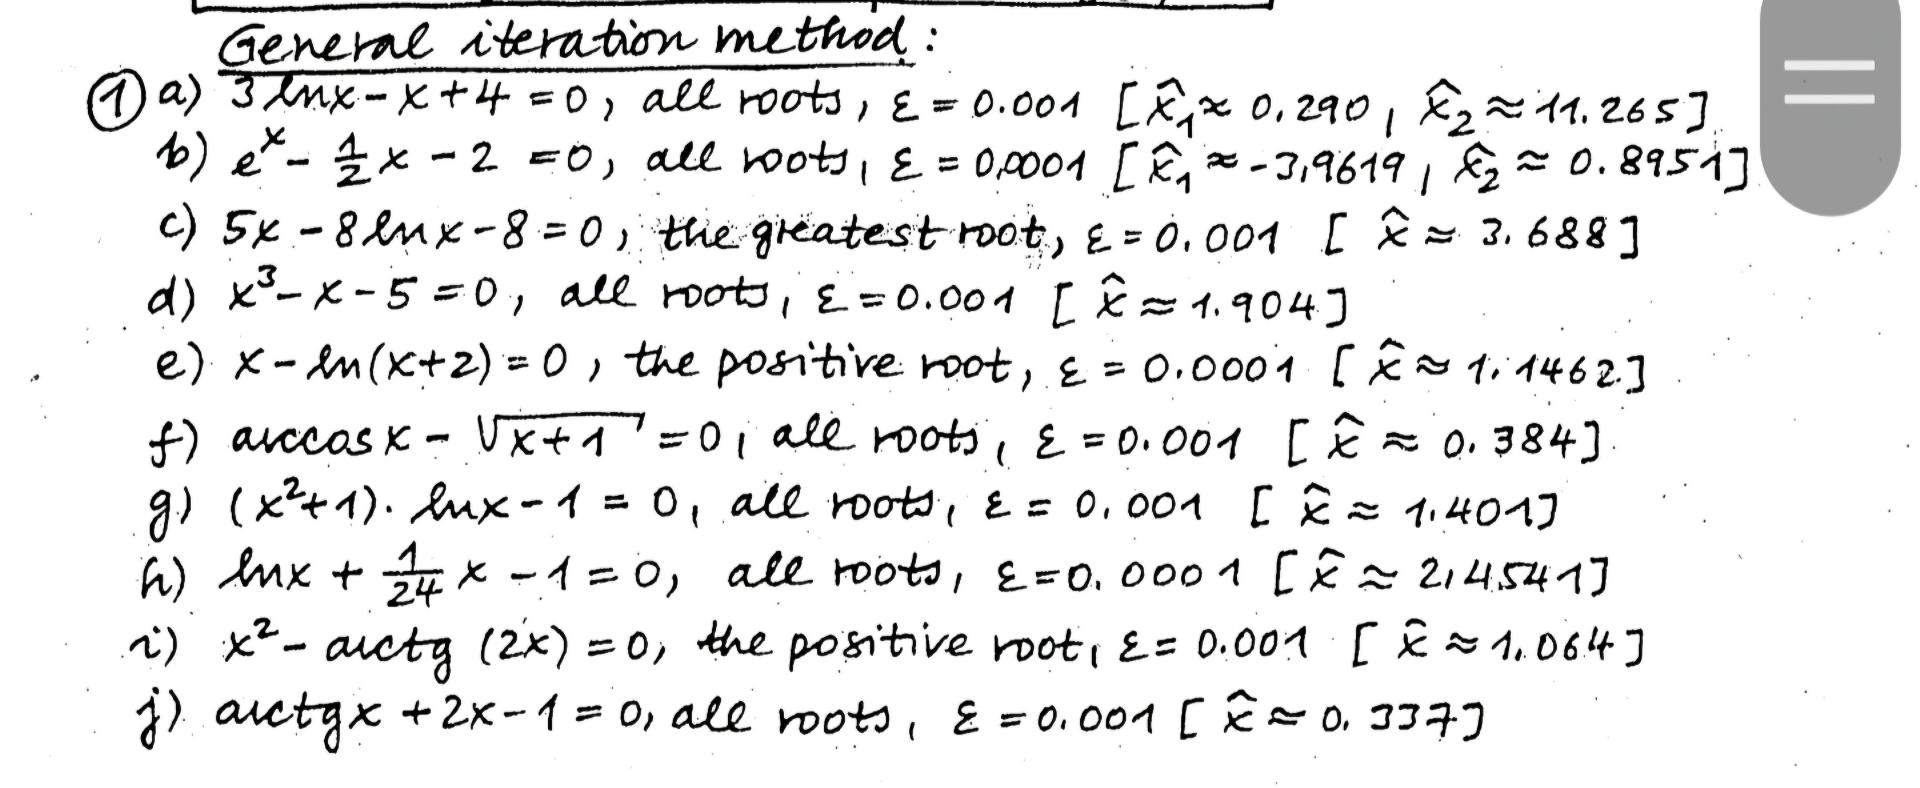 General iteration method:
① a) 3 lnx - x + 4 = 0, all roots, ε = 0.001 [x̂₁ ≈ 0,290, x̂₂ ≈ 11.265]
b) eˣ - 1/2 x - 2 = 0, all roots, ε = 0,0001 [x̂₁ ≈ -3,9619, x̂₂ ≈ 0.8951]
c) 5x - 8 lnx - 8 = 0, the greatest root, ε = 0.001 [x̂ ≈ 3.688]
d) x³ - x - 5 = 0, all roots, ε = 0.001 [x̂ ≈ 1.904]
e) x - ln(x+2) = 0, the positive root, ε = 0.0001 [x̂ ≈ 1.1462]
f) arccos x - √(x+1) = 0, all roots, ε = 0.001 [x̂ ≈ 0.384]
g) (x²+1). lnx - 1 = 0, all roots, ε = 0,001 [x̂ ≈ 1.401]
h) lnx + 1/24 x - 1 = 0, all roots, ε = 0.0001 [x̂ ≈ 2,4541]
i) x² - arctg (2x) = 0, the positive root, ε = 0.001 [x̂ ≈ 1,064]
j) arctgx + 2x - 1 = 0, all roots, ε = 0.001 [x̂ ≈ 0.337]